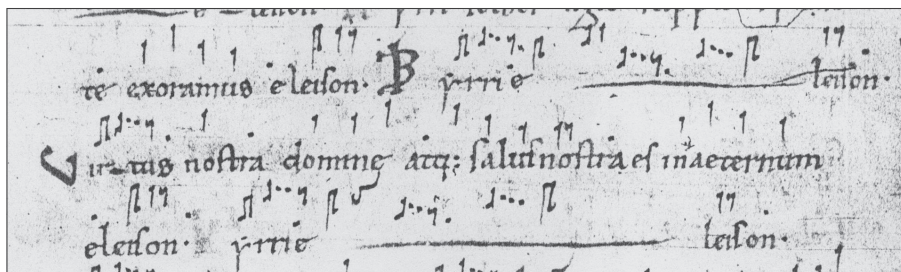 te exoramus eleison. kyrrie leison.
Virtus nostra domine atq; salus nostra es inaeternum
eleison. yrrie leison.